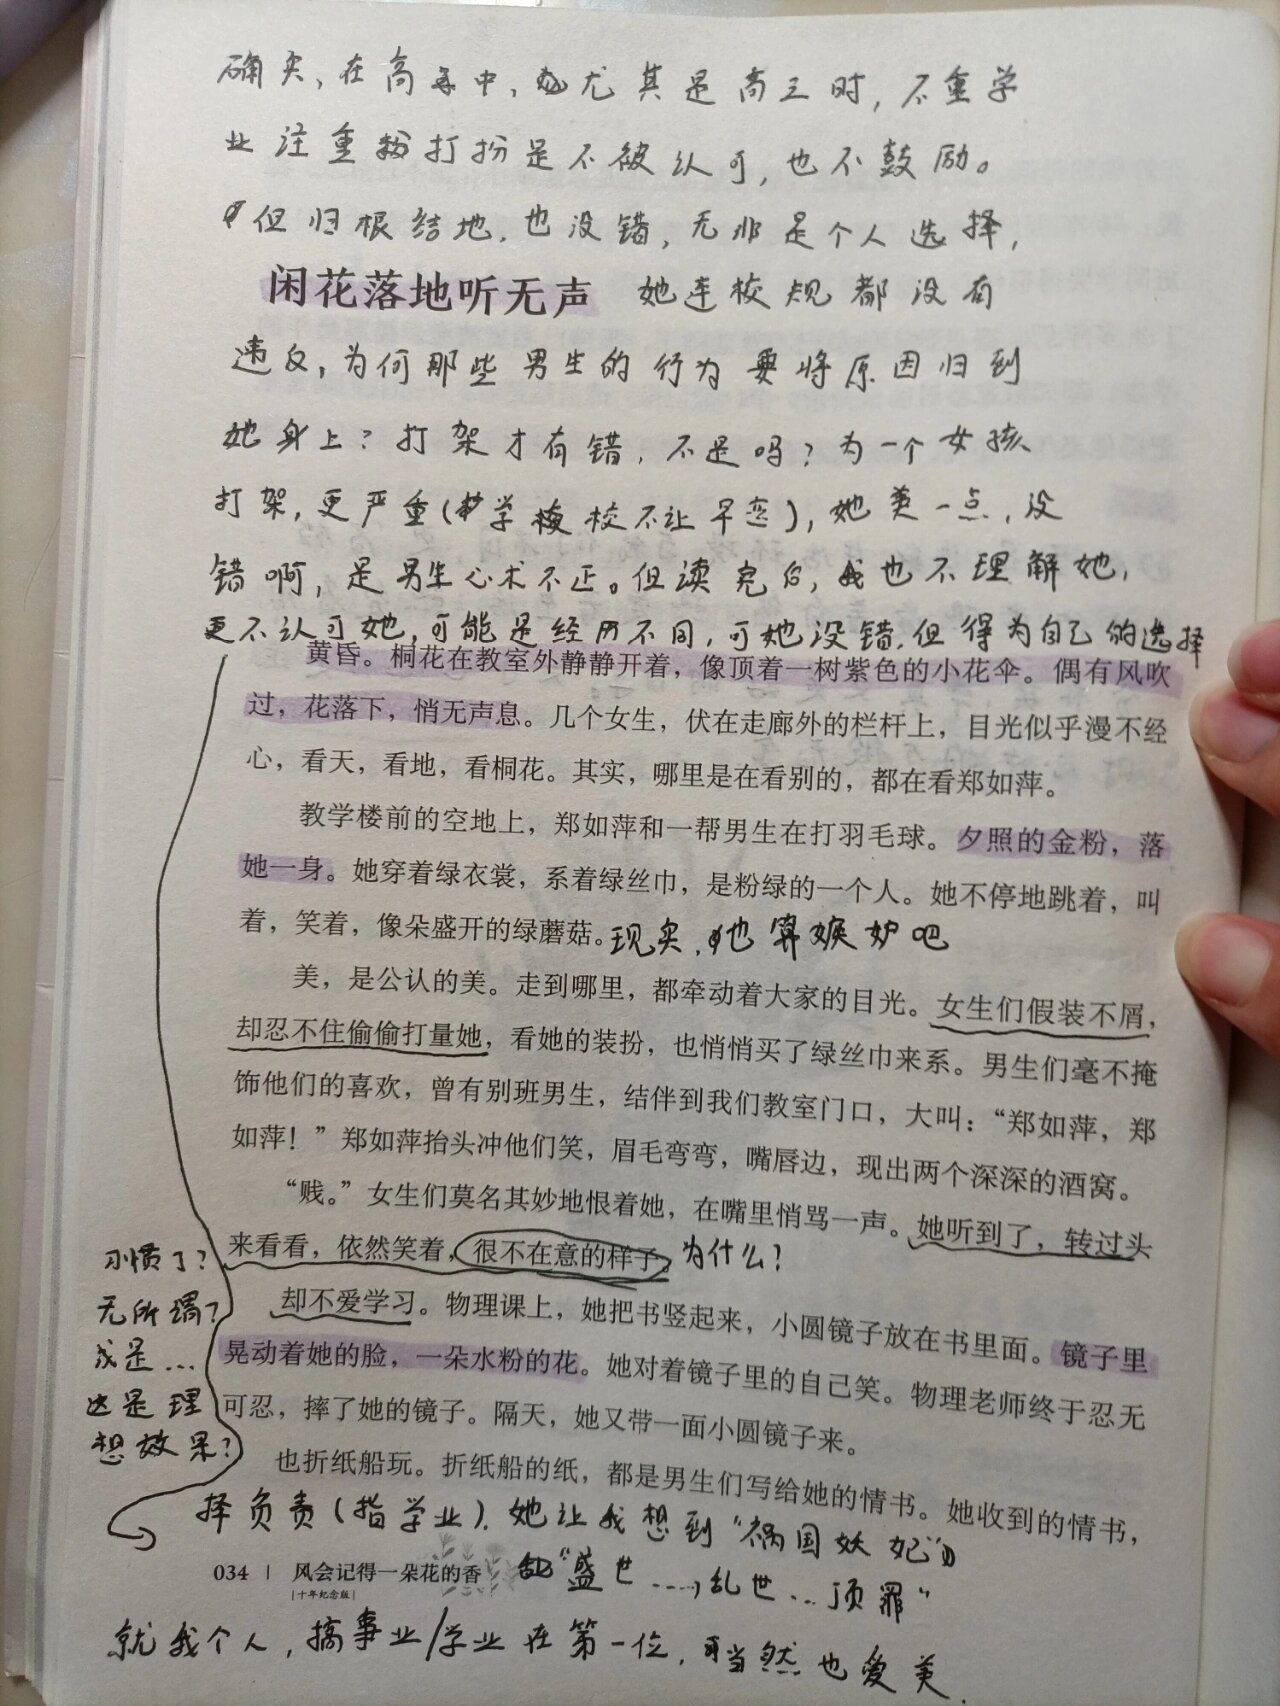 确实，在高三中，尤其是高三时，不重学
业注重打扮是不被认可，也不鼓励。
但归根结地，也没错，无非是个人选择，
闲花落地听无声 她连校规都没有
违反，为何那些男生的行为要将原因归到
她身上？打架才有错，不是吗？为一个女孩
打架，更严重(学校不让早恋)，她美一点，没
错啊，是男生心术不正。但读完后，我也不理解她，
更不认可她，可能是经历不同，可她没错，但得为自己的选择
黄昏。桐花在教室外静静开着，像顶着一树紫色的小花伞。偶有风吹
过，花落下，悄无声息。几个女生，伏在走廊外的栏杆上，目光似乎漫不经
心，看天，看地，看桐花。其实，哪里是在看别的，都在看郑如萍。
教学楼前的空地上，郑如萍和一帮男生在打羽毛球。夕照的金粉，落
她一身。她穿着绿衣裳，系着绿丝巾，是粉绿的一个人。她不停地跳着，叫
着，笑着，像朵盛开的绿蘑菇。现实，也算嫉妒吧
美，是公认的美。走到哪里，都牵动着大家的目光。女生们假装不屑，
却忍不住偷偷打量她，看她的装扮，也悄悄买了绿丝巾来系。男生们毫不掩
饰他们的喜欢，曾有别班男生，结伴到我们教室门口，大叫：“郑如萍，郑
如萍！”郑如萍抬头冲他们笑，眉毛弯弯，嘴唇边，现出两个深深的酒窝。
“贱。”女生们莫名其妙地恨着她，在嘴里悄骂一声。她听到了，转过头
来看看，依然笑着，很不在意的样子。为什么？
习惯了？
无所谓？
或是…
这是理
想效果？
却不爱学习。物理课上，她把书竖起来，小圆镜子放在书里面。镜子里
晃动着她的脸，一朵水粉的花。她对着镜子里的自己笑。物理老师终于忍无
可忍，摔了她的镜子。隔天，她又带一面小圆镜子来。
也折纸船玩。折纸船的纸，都是男生们写给她的情书。她收到的情书，
择负责(指学业)，她让我想到“祸国妖妃”
“盛世……，乱世…顶罪”
034 | 风会记得一朵花的香
|十年纪念版|
就我个人，搞事业/学业在第一位，当然也爱美.